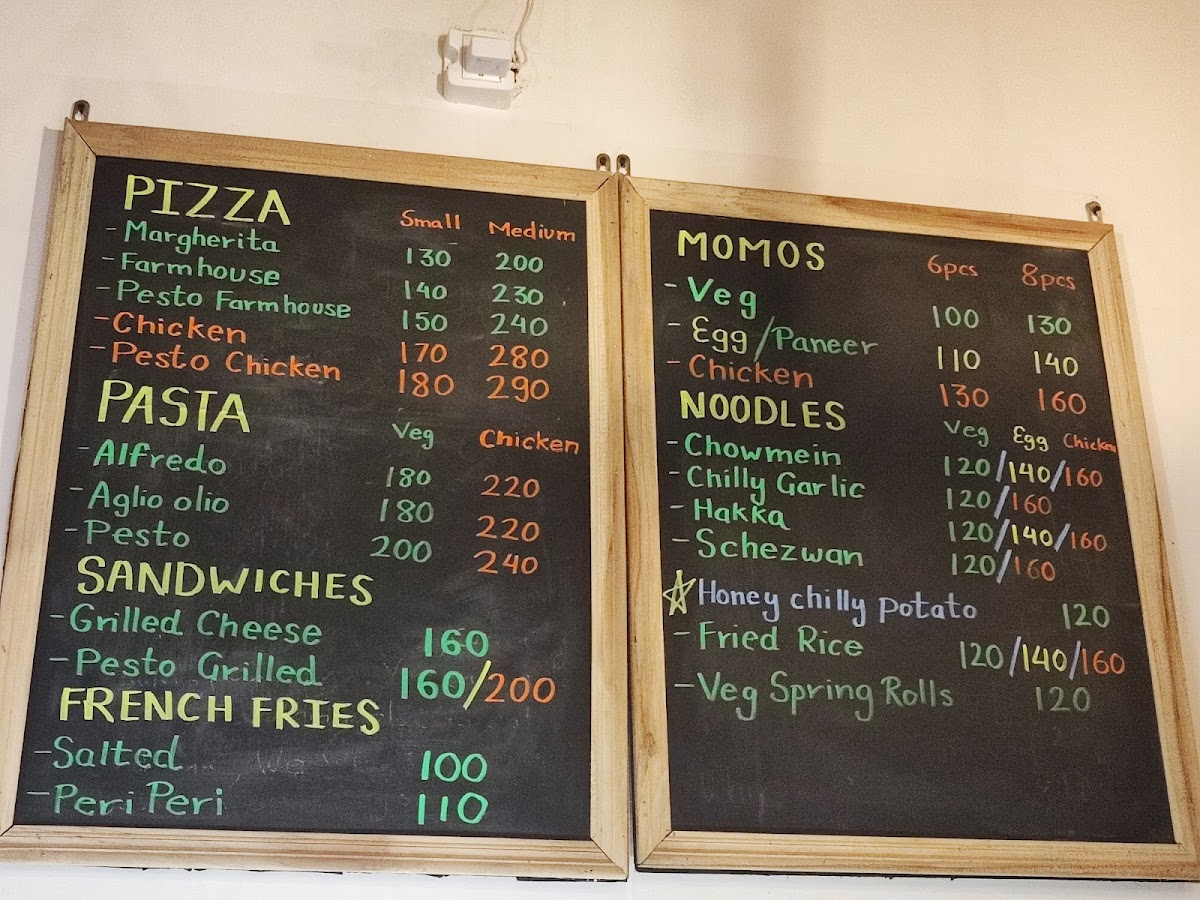 PIZZA Small Medium
- Margherita 130 200
- Farmhouse 140 230
- Pesto Farmhouse 150 240
- Chicken 170 280
- Pesto Chicken 180 290
PASTA Veg Chicken
- Alfredo 180 220
- Aglio olio 180 220
- Pesto 200 240
SANDWICHES
- Grilled Cheese 160
- Pesto Grilled 160/200
FRENCH FRIES
- Salted 100
- Peri Peri 110
MOMOS 6pcs 8pcs
- Veg 100 130
- Egg/Paneer 110 140
- Chicken 130 160
NOODLES Veg Egg Chicken
- Chowmein 120/140/160
- Chilly Garlic 120/160
- Hakka 120/140/160
- Schezwan 120/160
☆ Honey chilly potato 120
- Fried Rice 120/140/160
- Veg Spring Rolls 120